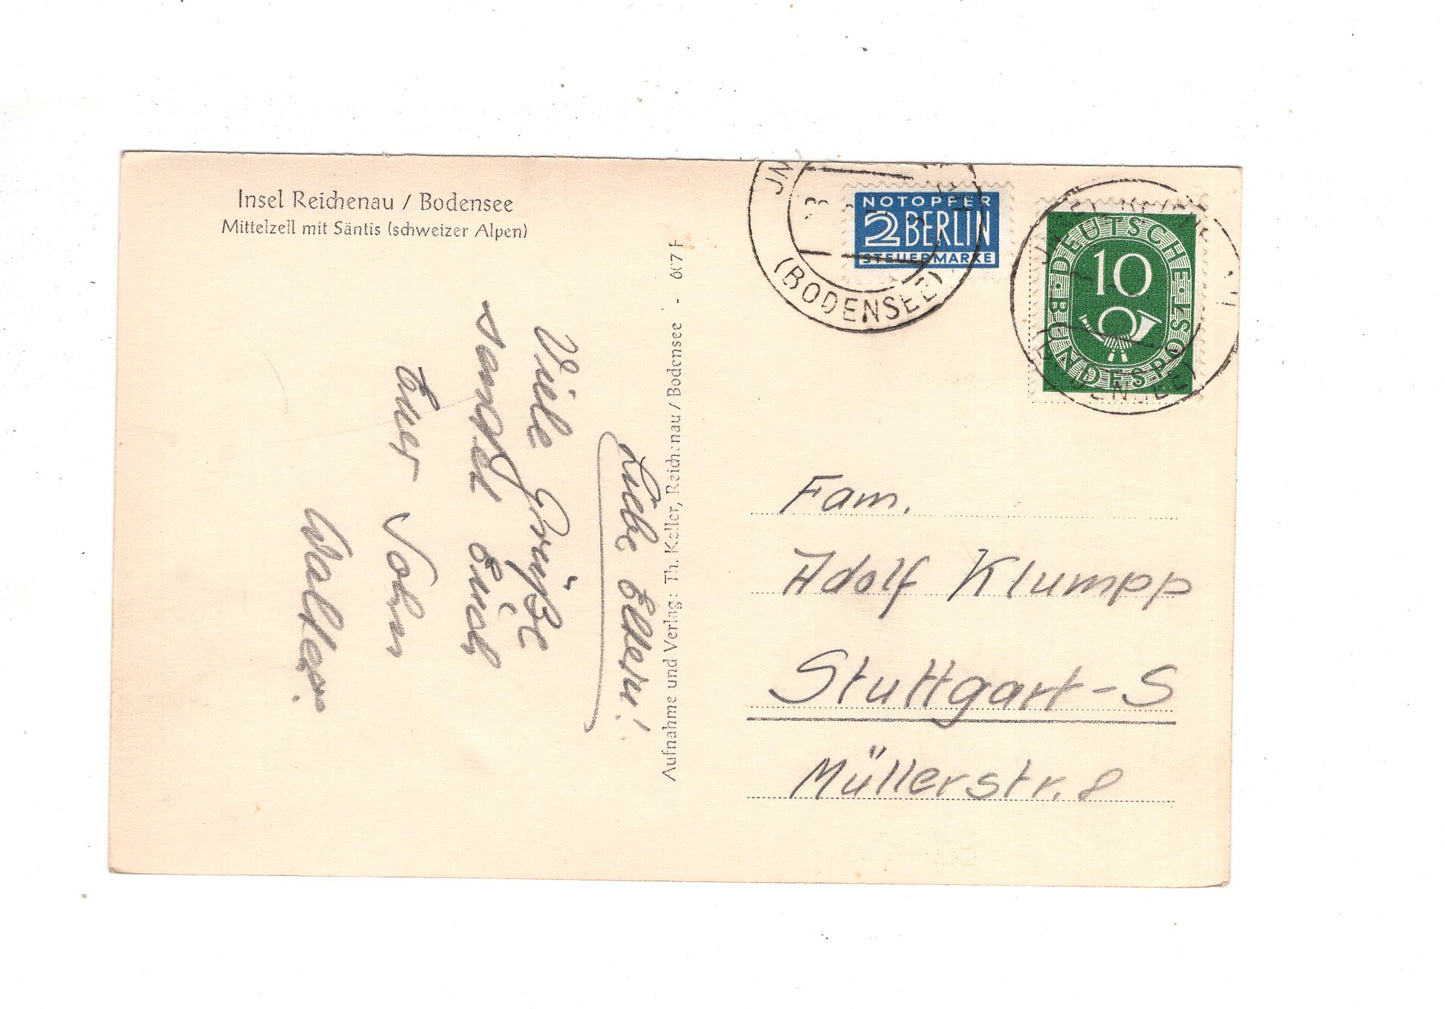 Insel Reichenau / Bodensee
Mittelzell mit Säntis (schweizer Alpen)
Liebe Eltern!
Viele Grüße
sendet Euch
Euer Sohn
Walter.
Aufnahme und Verlag: Th. Keller, Reichenau / Bodensee - 607 F
(BODENSEE)
NOTOPFER
2 BERLIN
STEUERMARKE
DEUTSCHE
BUNDESPOST
10
Fam.
Adolf Klumpp
Stuttgart-S
Müllerstr. 8